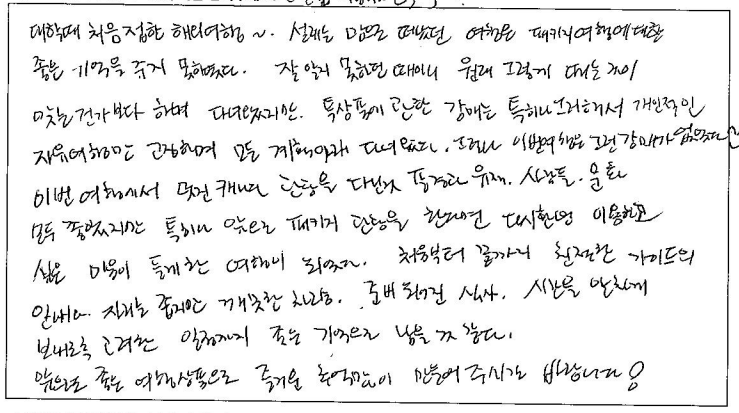 대학때 처음접한 해외여행~. 설레는 맘으로 떠났던 여행은 패키지여행에대한
좋은 기억을 주지 못하였다. 잘 알지 못하던 때이니 원래 그렇게 다니는것이
맞는건가보다 하며 다녀왔지만. 특상품에 관한 강매는 특히나 그러해서 개인적인
자유여행만 고집하며 모든 계획아래 다녀왔다. 그러나 이번여행은 그런강매가 없었다
이번 여행에서 멋진 캐나다 단풍을 다녀와 풍경과 유재. 사람들. 문화
모두 좋았지만 특히나 앞으로 패키지 관광을 한다면 다시한번 이용하고
싶은 마음이 들게한 여행이 되었다. 처음부터 끝까지 친절한 가이드의
안내와 지내는 동안 깨끗한 차량. 준비되어진 식사. 시간을 알차게
보내도록 고려한 일정까지 좋은 기억으로 남을 것 같다.
앞으로도 좋은 여행상품으로 즐거운 추억많이 만들어 주시길 바랍니다!